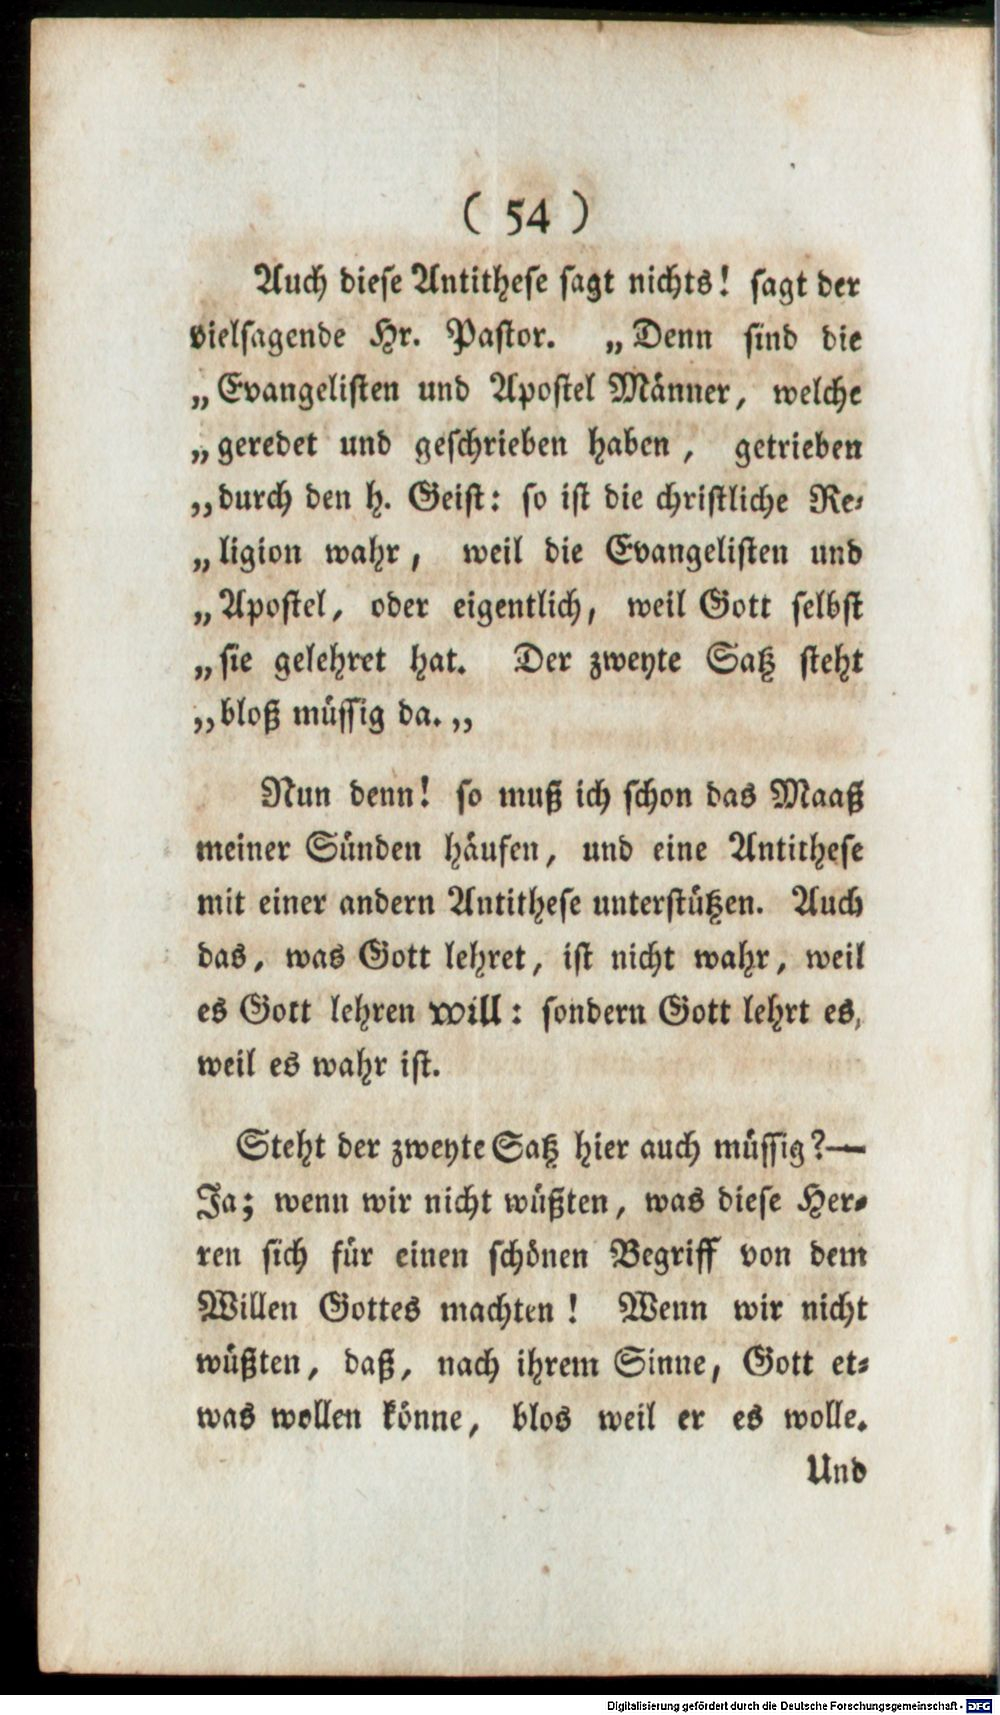 ( 54 )
Auch diese Antithese sagt nichts! sagt der
vielsagende Hr. Pastor. „Denn sind die
„Evangelisten und Apostel Männer, welche
„geredet und geschrieben haben, getrieben
„durch den h. Geist: so ist die christliche Re-
„ligion wahr, weil die Evangelisten und
„Apostel, oder eigentlich, weil Gott selbst
„sie gelehret hat. Der zweyte Satz steht
„bloß müssig da.„
Nun denn! so muß ich schon das Maaß
meiner Sünden häufen, und eine Antithese
mit einer andern Antithese unterstützen. Auch
das, was Gott lehret, ist nicht wahr, weil
es Gott lehren will: sondern Gott lehrt es,
weil es wahr ist.
Steht der zweyte Satz hier auch müssig?—
Ja; wenn wir nicht wüßten, was diese Her-
ren sich für einen schönen Begriff von dem
Willen Gottes machten! Wenn wir nicht
wüßten, daß, nach ihrem Sinne, Gott et-
was wollen könne, blos weil er es wolle.
Und
Digitalisierung gefördert durch die Deutsche Forschungsgemeinschaft - DFG